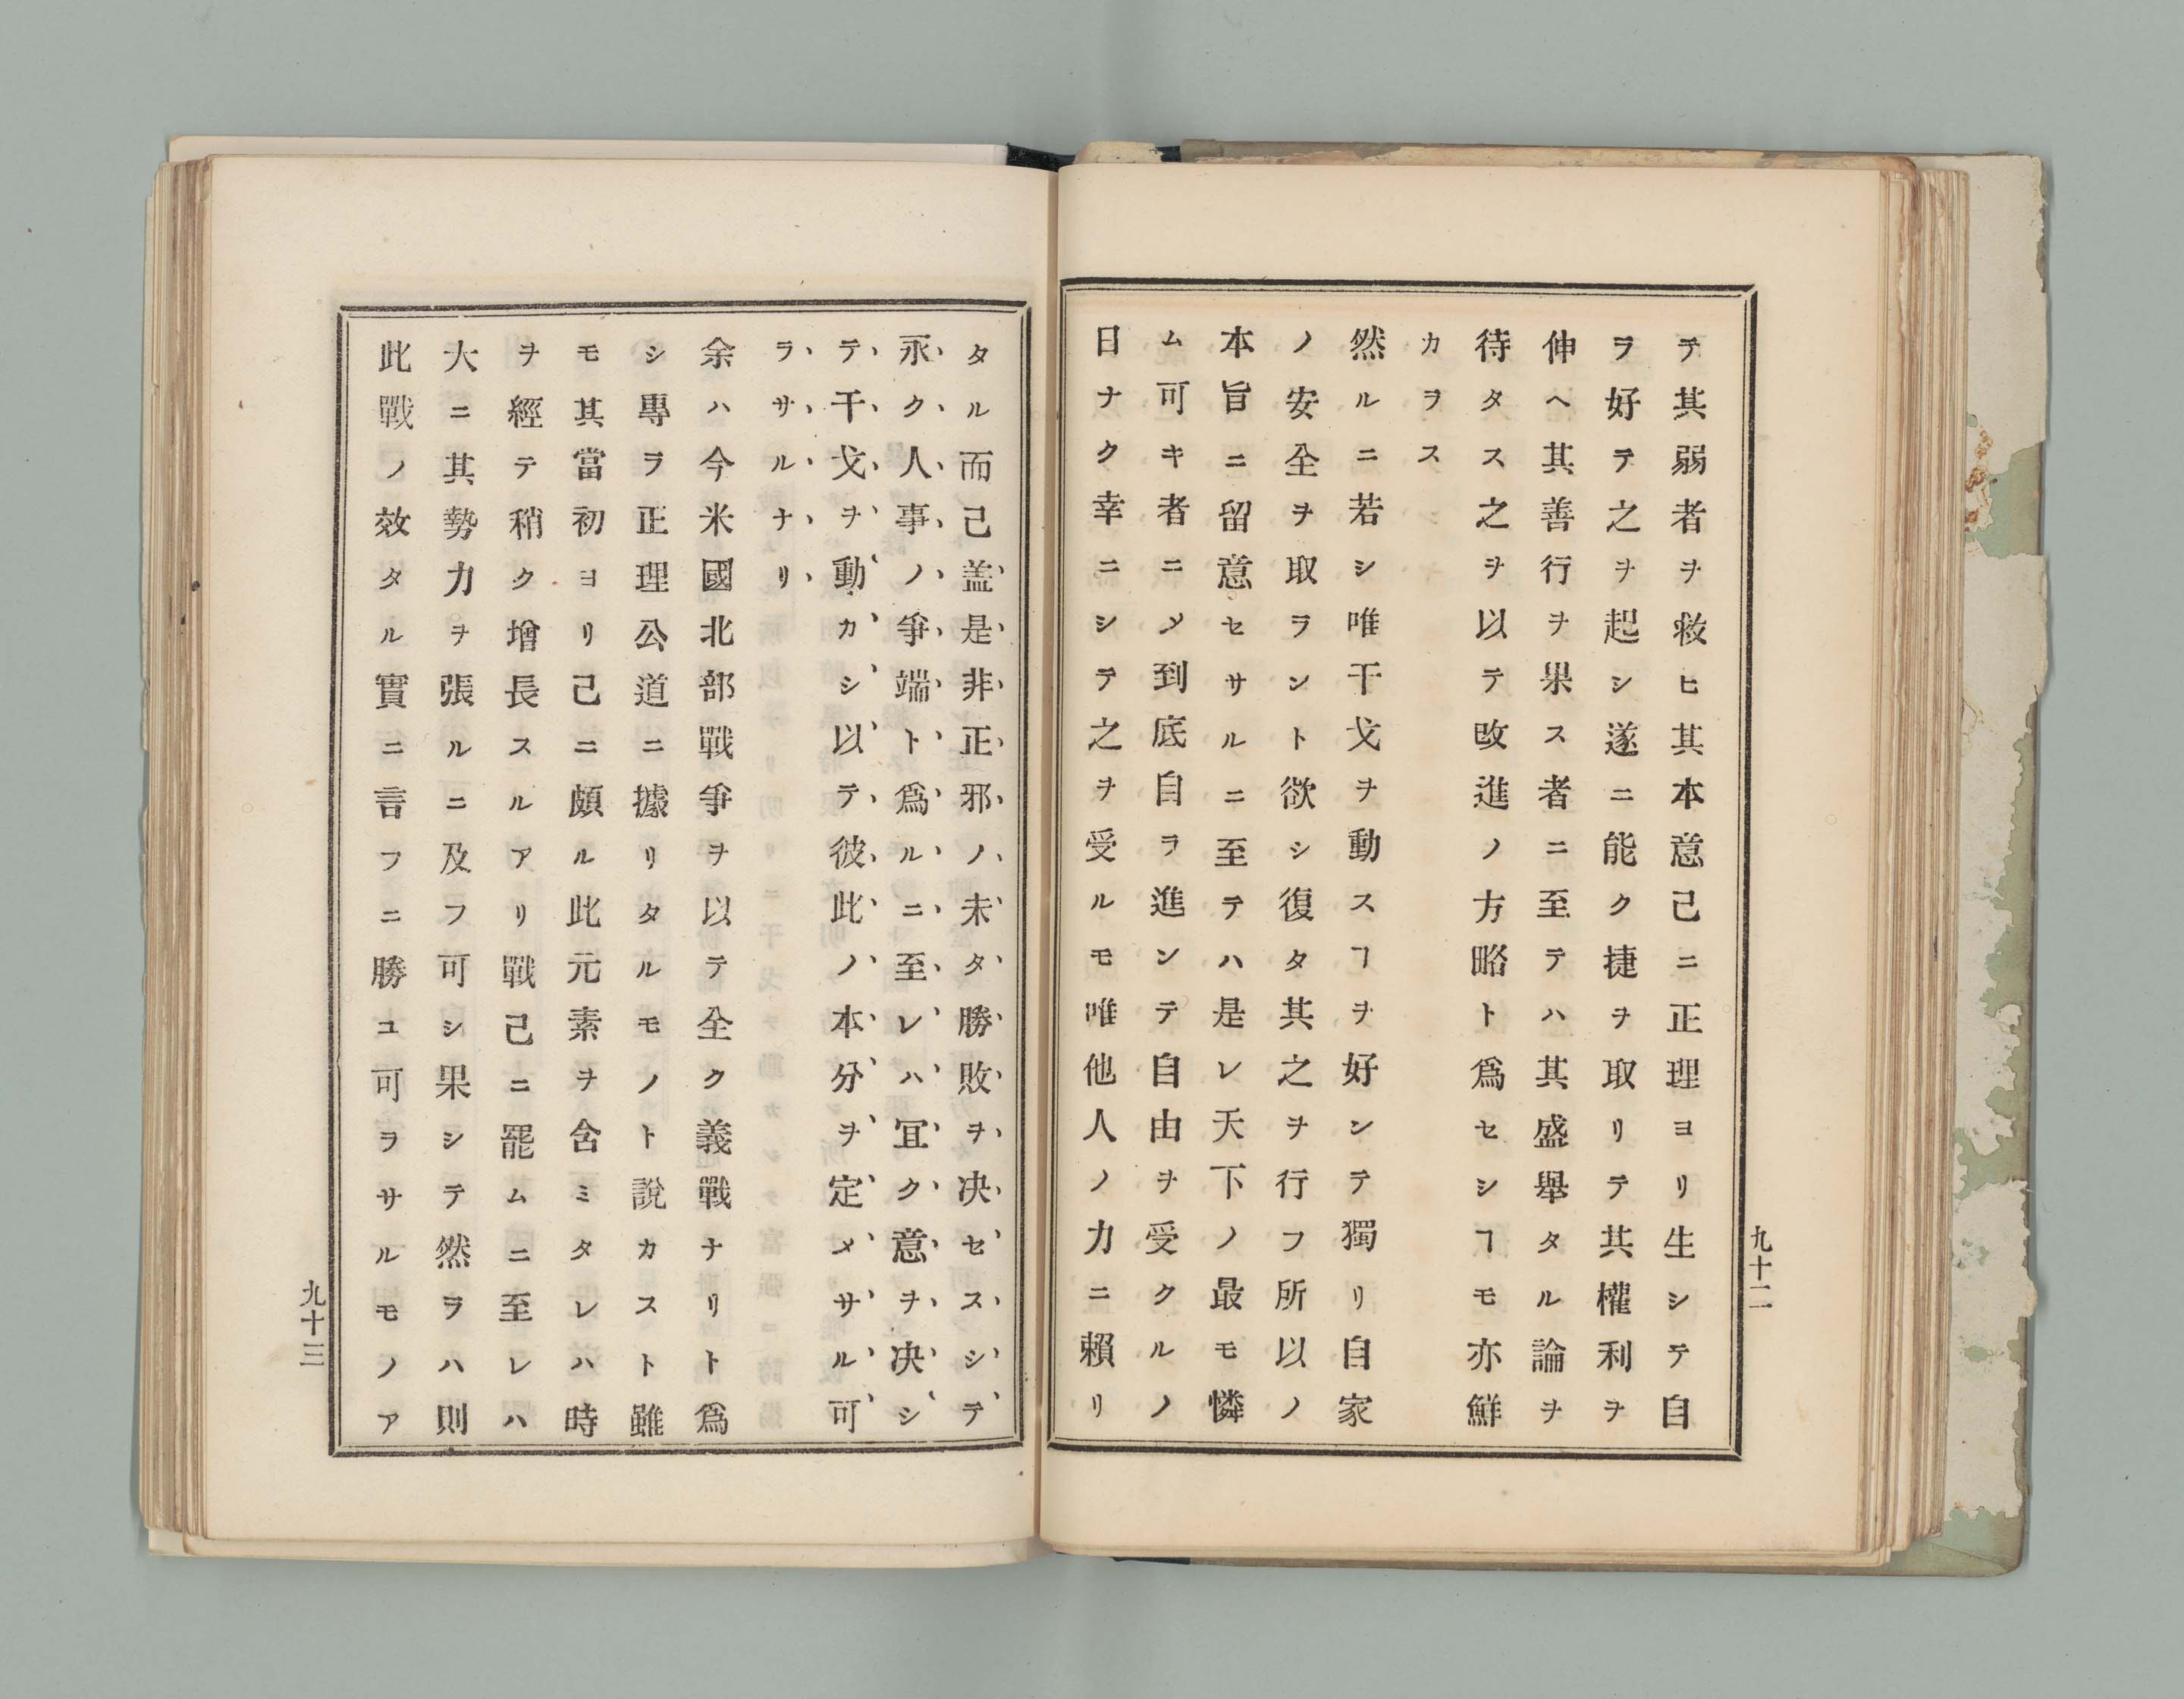 テ其弱者ヲ救ヒ其本意己ニ正理ヨリ生シテ自
ヲ好テ之ヲ起シ遂ニ能ク捷ヲ取リテ其權利ヲ
伸ヘ其善行ヲ果ス者ニ至テハ其盛舉タル論ヲ
待タス之ヲ以テ攺進ノ方略ト爲セシヿモ亦鮮
カヲス
然ルニ若シ唯干戈ヲ動スヿヲ好ンテ獨リ自家
ノ安全ヲ取ラント欲シ復タ其之ヲ行フ所以ノ
本旨ニ留意セサルニ至テハ是レ天下ノ最モ憐
ム可キ者ニメ到底自ラ進ンテ自由ヲ受クルノ
日ナク幸ニシテ之ヲ受ルモ唯他人ノ力ニ賴リ
九十二
タル而己盖是非正邪ノ未タ勝敗ヲ决セスシテ
永ク人事ノ爭端ト爲ルニ至レハ冝ク意ヲ决シ
テ干戈ヲ動カシ以テ彼此ノ本分ヲ定メサル可
ラサルナリ
余ハ今米國北部戰爭ヲ以テ全ク義戰ナリト爲
シ專ラ正理公道ニ據リタルモノト說カスト雖
モ其當初ヨリ己ニ頗ル此元素ヲ含ミタレハ時
ヲ經テ稍ク增長スルアリ戰己ニ罷ムニ至レハ
大ニ其勢力ヲ張ルニ及フ可シ果シテ然ヲハ則
此戰ノ效タル實ニ言フニ勝ユ可ヲサルモノア
九十三